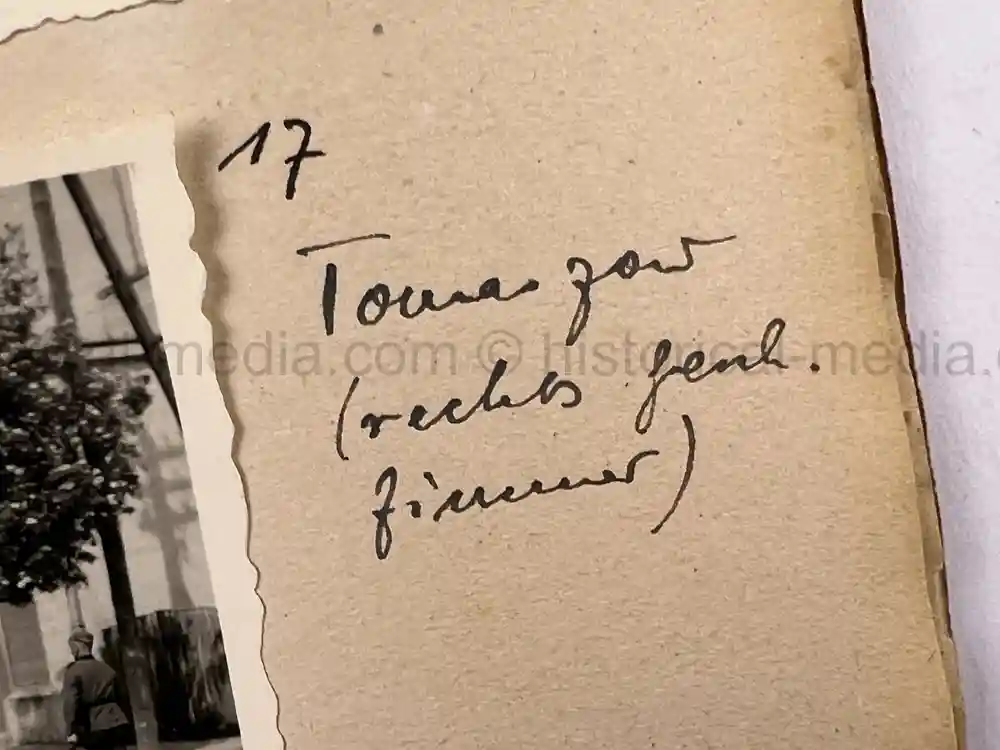 17
Tomaszow
(rechts Gesch.
zimmer)
media.com © historical-media.c